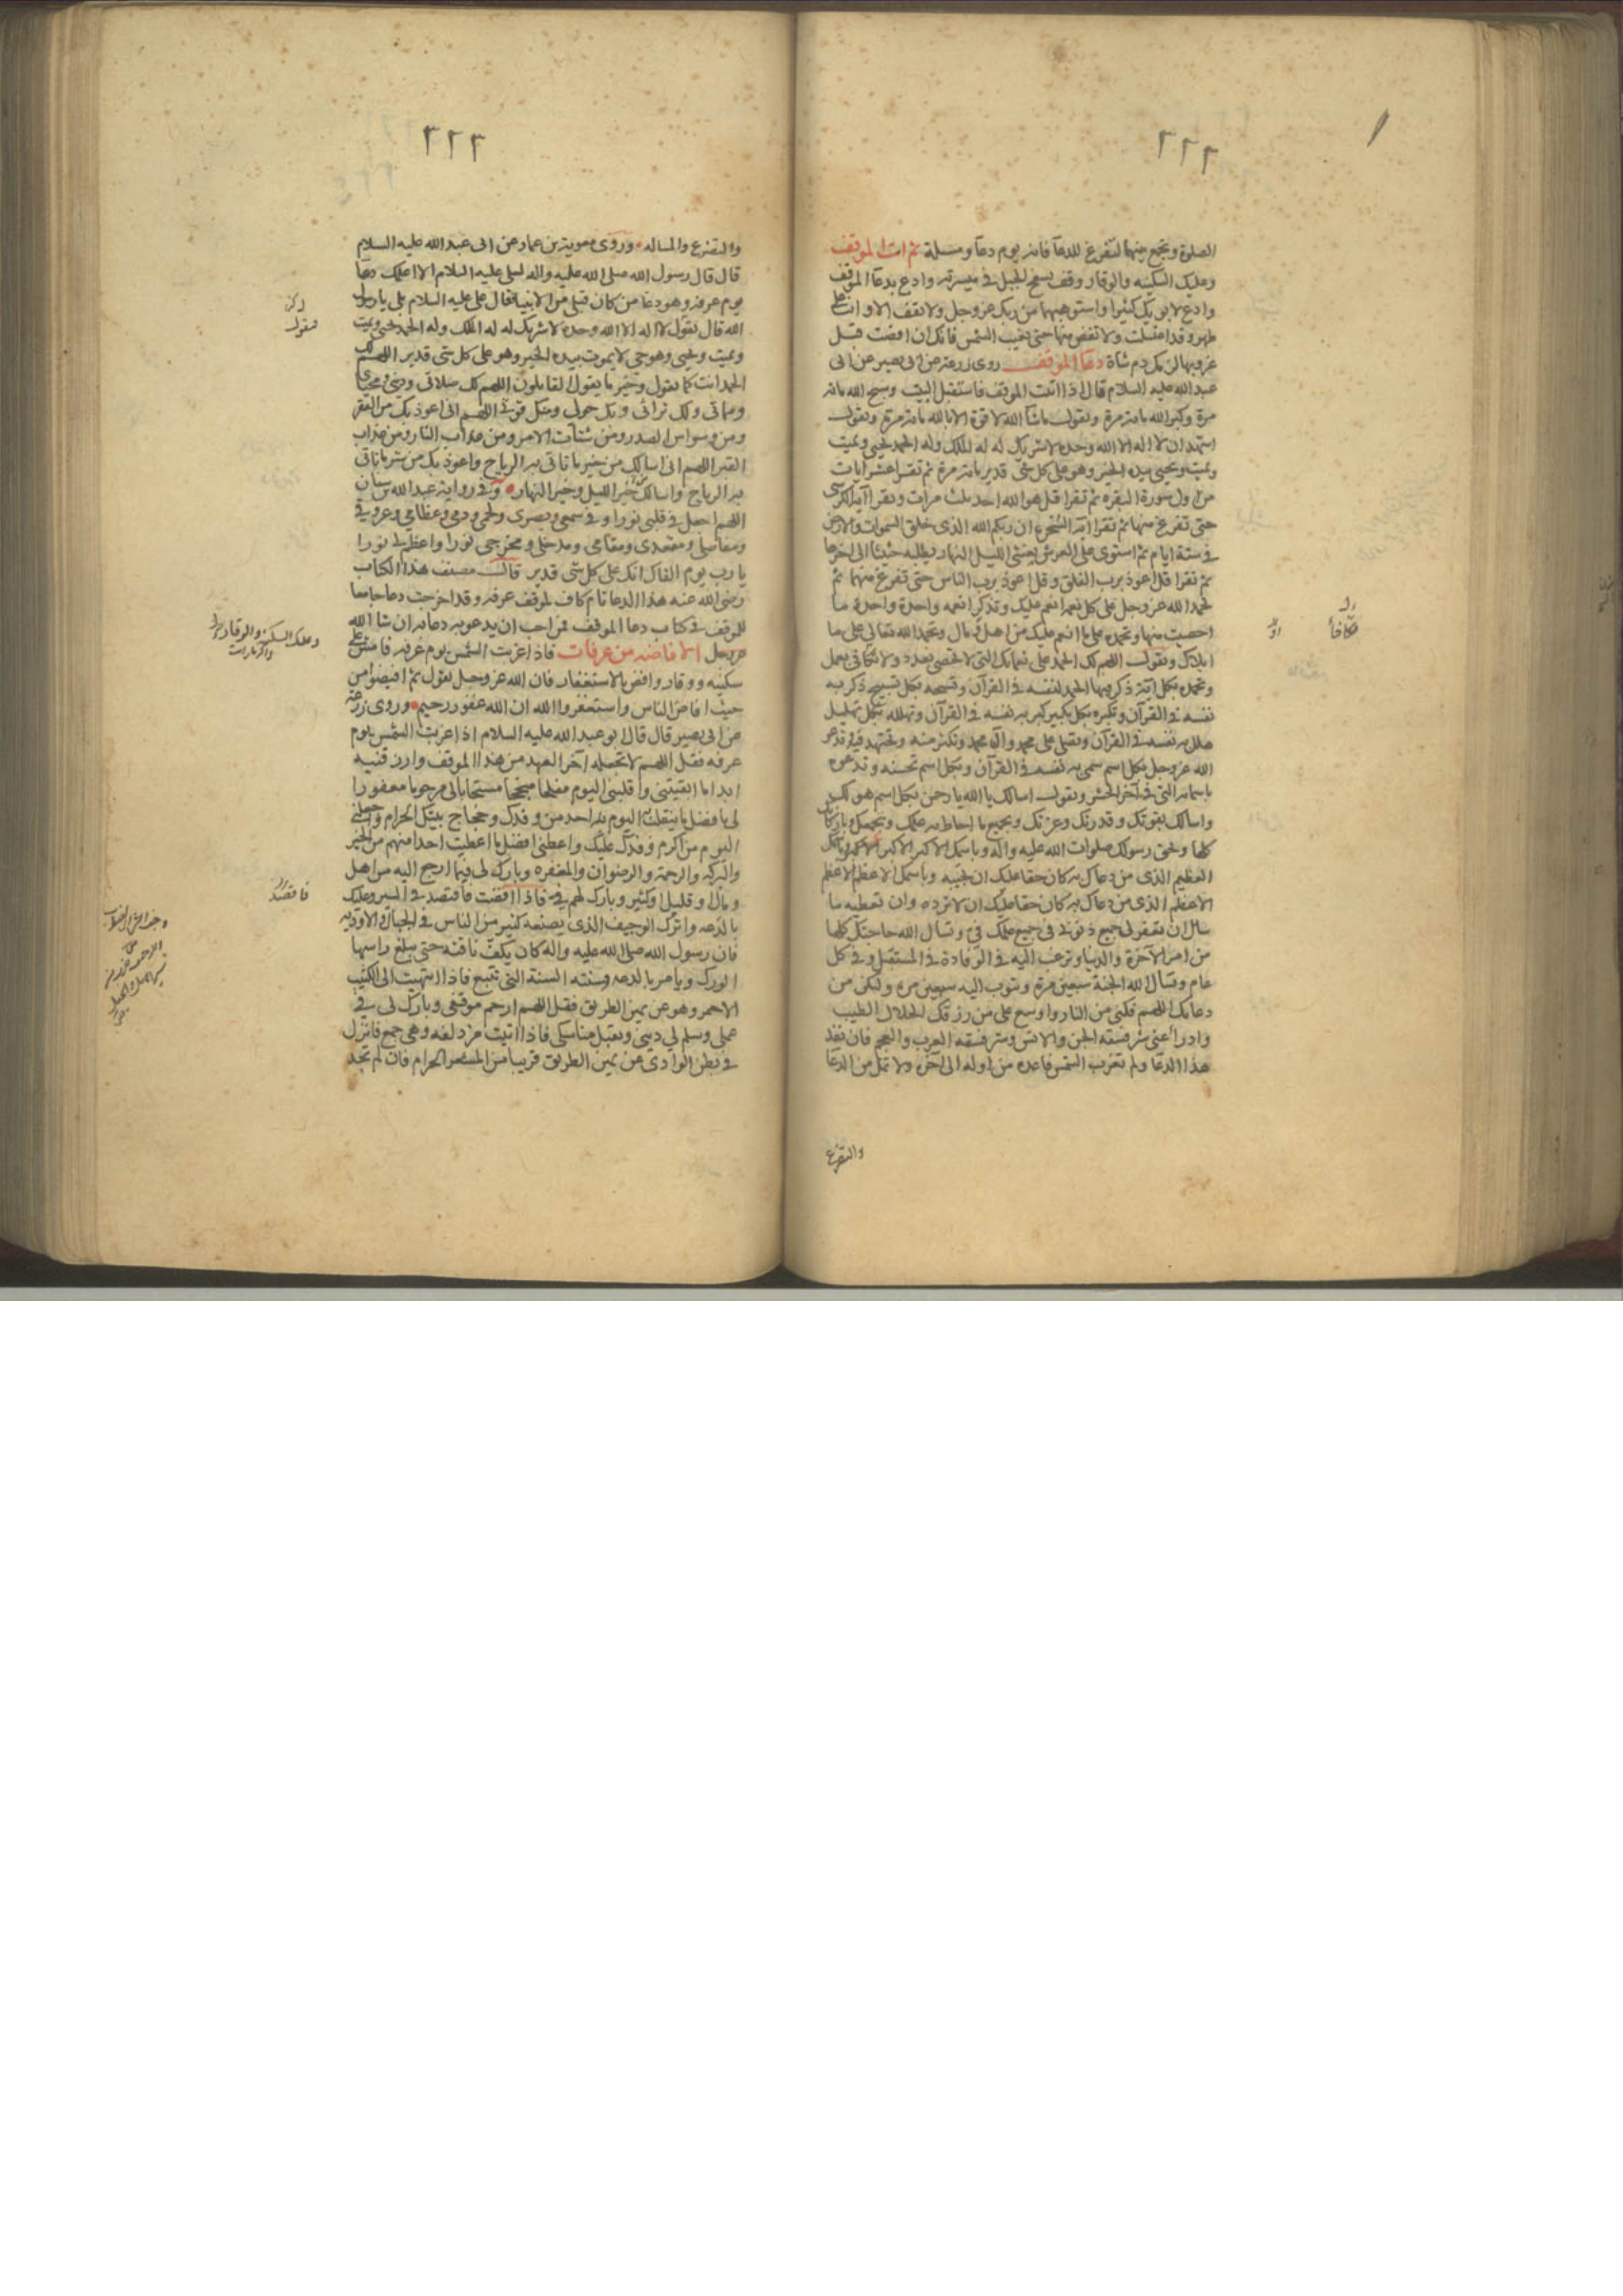 ٢٢٢
الصلوة وتجمع بينهما لتفرغ للدعآ فانه يوم دعآ ومسئلة ثم ائت الموقف
وعليك السكينه والوقار وقف بسفح الجبل في ميسرته وادع بدعآ الموقف
وادع لابويك كثيرا واستوهبهما من ربك عز وجل ولا تقف الا وانت على
طهر وقد اغتسلت ولا تفض منها حتى تغيب الشمس فانك ان افضت قبل
غروبها لزمك دم شاة دعآ الموقف روى زرعة عن ابى بصير عن ابى
عبد الله عليه السلام قال اذا اتيت الموقف فاستقبل البيت وسبح الله مائة
مرة وكبر الله مائة مرة وتقول ماشآ الله لا قوة الا بالله مائة مرة وتقول
اشهد ان لا اله الا الله وحده لا شريك له له الملك وله الحمد يحيى ويميت
ويميت ويحيى بيده الخير وهو على كل شئ قدير مائة مرة ثم تقرا عشر ايات
من اول سورة البقره ثم تقرا قل هو الله احد ثلث مرات وتقرا آية الكرسى
حتى تفرغ منها ثم تقرا آية السخرة ان ربكم الله الذى خلق السموات والارض
في ستة ايام ثم استوى على العرش يغشى الليل النهار يطلبه حثيثا الى اخرها
ثم تقرا قل اعوذ برب الفلق وقل اعوذ برب الناس حتى تفرغ منهما ثم
تحمد الله عز وجل على كل نعمة انعم عليك وتذكر انعمه واحدة واحدة ما
احصيت منها وتحمده على ما انعم عليك من اهل او مال وتحمد الله تعالى على ما
ابلاك وتقول اللهم لك الحمد على نعمائك التى لا تحصى بعدد ولا تكافى بعمل
وتحمده بكل آية ذكر فيها الحمد لنفسه في القرآن وتسبحه بكل تسبيح ذكر به
نفسه في القرآن وتكبره بكل تكبير كبر به نفسه في القرآن وتهلله بكل تهليل
هلل به نفسه في القرآن وتصلى على محمد وآل محمد وتكثر منه وتجتهد فيه وتدعو
الله عز وجل بكل اسم سمى به نفسه في القرآن وبكل اسم تحسنه وتدعوه
باسمائه التى في آخر الحشر وتقول اسالك يا الله يا رحمن بكل اسم هو لك
واسالك بقوتك وقدرتك وعزتك وبجميع ما احاط به علمك وبجمعك وباركانك
كلها وبحق رسولك صلوات الله عليه وآله وباسمك الاكبر الاكبر الاكبر وباسمك
العظيم الذى من دعاك به كان حقا عليك ان تجيبه وباسمك الاعظم الاعظم
الاعظم الذى من دعاك به كان حقا عليك ان لا ترده وان تعطيه ما
سال ان تغفر لى جميع ذنوبى في جميع علمك في وتسال الله حاجتك كلها
من امر الآخرة والدنيا وترغب اليه في الوفادة في المستقبل وفي كل
عام وتسال الله الجنة سبعين مرة وتتوب اليه سبعين مرة وليكن من
دعائك اللهم فكنى من النار واوسع على من رزقك الحلال الطيب
وادرأ عنى شر فسقه الجن والانس وشر فسقه العرب والعجم فان نفد
هذا الدعآ ولم تغرب الشمس فاعده من اوله الى آخره ولا تمل من الدعآ
والتضرع
٢٢٣
والتضرع والمساله وروى معوية بن عمار عن ابى عبد الله عليه السلام
قال قال رسول الله صلى الله عليه واله لعلى عليه السلام الا اعلمك دعآ
يوم عرفه وهو دعآ من كان قبلى من الانبيآ فقال على عليه السلام بلى يا رسول
الله قال تقول لا اله الا الله وحده لا شريك له له الملك وله الحمد يحيى ويميت
ويميت ويحيى وهو حى لا يموت بيده الخير وهو على كل شئ قدير اللهم لك
الحمد انت كما تقول وخير ما يقول القائلون اللهم لك صلاتى ودينى ومحياى
ومماتى ولك تراثى وبك حولى ومنك قوتى اللهم انى اعوذ بك من الفقر
ومن وسواس الصدر ومن شتات الامر ومن عذاب النار ومن عذاب
القبر اللهم انى اسالك من خير ما تاتى به الرياح واعوذ بك من شر ما تاتى
به الرياح واسالك خير الليل وخير النهار وفي رواية عبد الله بن سنان
اللهم اجعل في قلبى نورا وفي سمعى وبصرى ولحمى ودمى وعظامى وعروقى
ومفاصلى ومقعدى ومقامى ومدخلى ومخرجى نورا واعظم لى نورا
يا رب يوم القاك انك على كل شئ قدير قال مصنف هذا الكتاب
رضى الله عنه هذا الدعآ تام كاف لموقف عرفه وقد اخرجت دعآ جامعا
للموقف في كتاب دعآ الموقف فمن احب ان يدعو به دعا به ان شآ الله
عز وجل الافاضه من عرفات فاذا غربت الشمس يوم عرفه فامش على
سكينه ووقار وافض بالاستغفار فان الله عز وجل يقول ثم افيضوا من
حيث افاض الناس واستغفروا الله ان الله غفور رحيم وروى زرعة
عن ابى بصير قال قال ابو عبد الله عليه السلام اذا غربت الشمس يوم
عرفه فقل اللهم لا تجعله آخر العهد من هذا الموقف وارزقنيه
ابدا ما ابقيتنى واقلبنى اليوم مفلحا منجحا مستجابا لى مرحوما مغفورا
لى بافضل ما ينقلب به اليوم احد من وفدك وحجاج بيتك الحرام واجعلنى
اليوم من اكرم وفدك عليك واعطنى افضل ما اعطيت احدا منهم من الخير
والبركه والرحمة والرضوان والمغفره وبارك لى فيما ارجع اليه من اهل
ومال او قليل او كثير وبارك لهم في فاذا افضت فاقتصد في السير وعليك
بالدعه واترك الوجيف الذى يصنعه كثير من الناس في الجبال والاوديه
فان رسول الله صلى الله عليه واله كان يكف ناقته حتى يبلغ راسها
الورك ويامر بالدعه وسنته السنة التى تتبع فاذا انتهيت الى الكثيب
الاحمر وهو عن يمين الطريق فقل اللهم ارحم موقفى وبارك لى في
عملى وسلم لى دينى وتقبل مناسكى فاذا اتيت مزدلفه وهى جمع فانزل
في بطن الوادى عن يمين الطريق قريبا من المشعر الحرام فان لم تجد
فتقول
وعليك السكينة والوقار
فاقصد